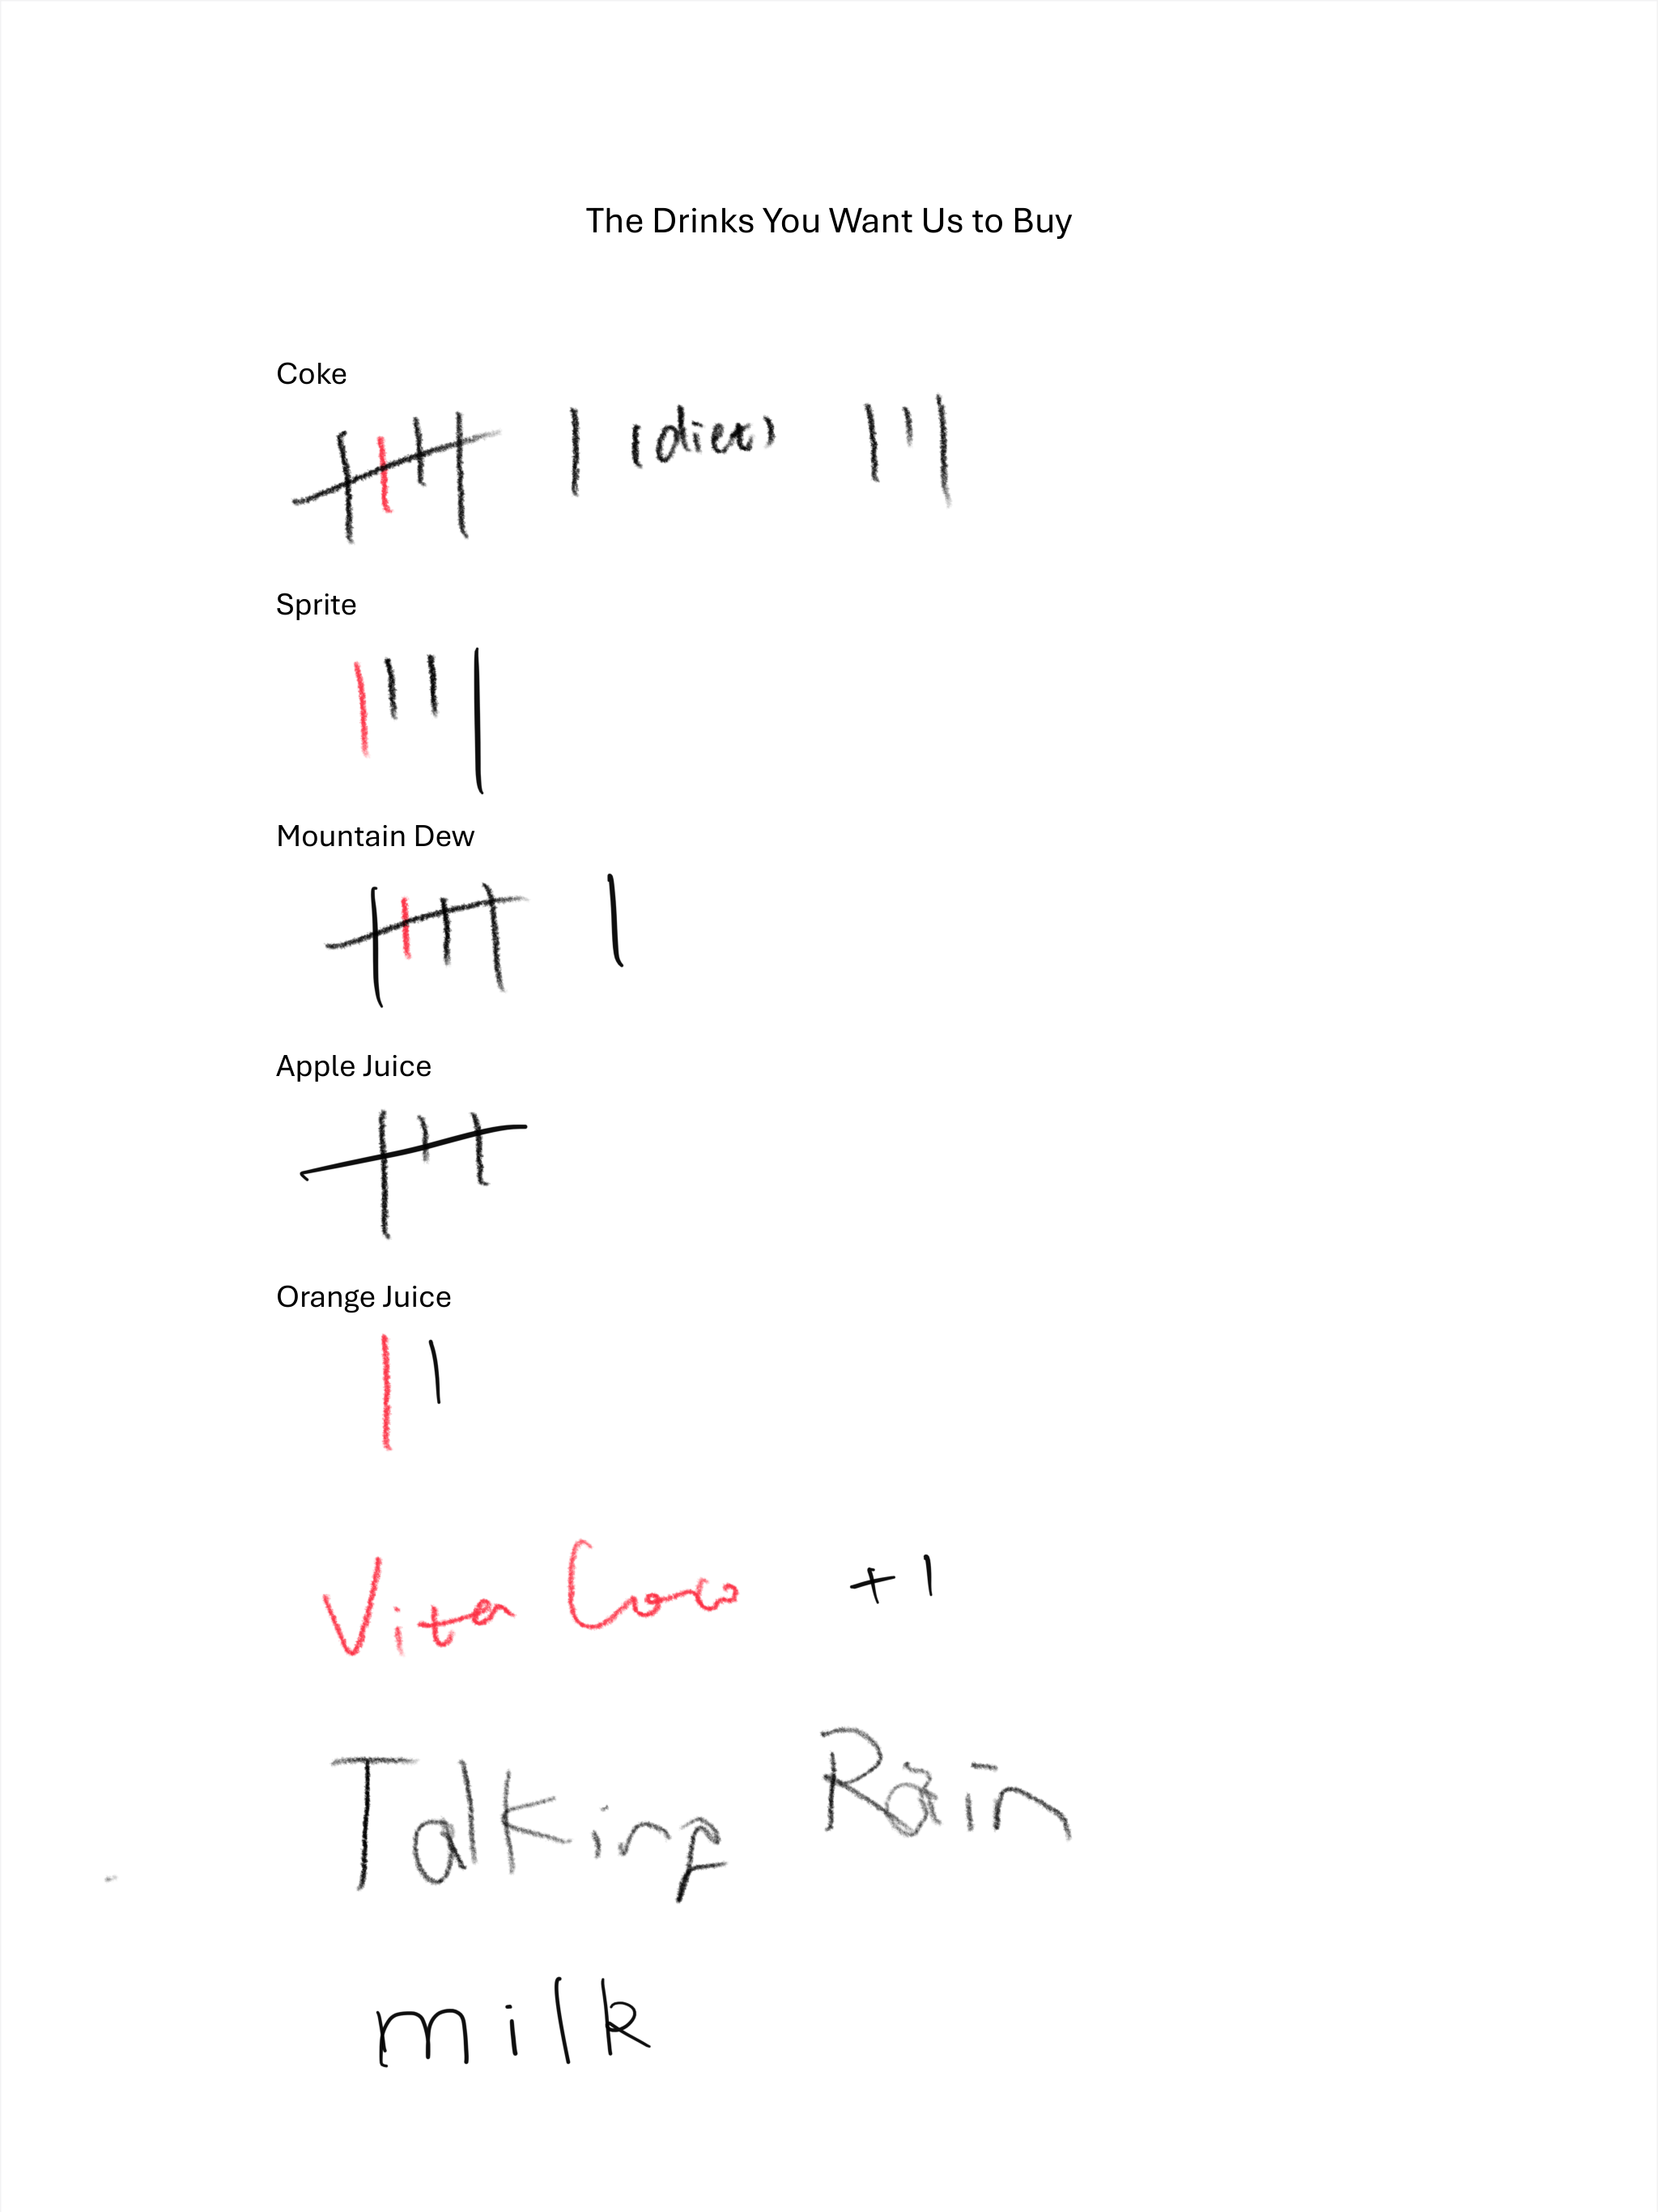 The Drinks You Want Us to Buy
Coke
(diet)
Sprite
Mountain Dew
Apple Juice
Orange Juice
Vita Coco +1
Talking Rain
milk